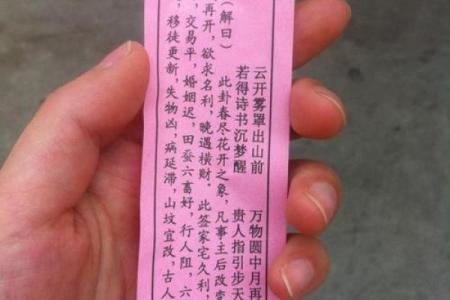 云开雾罩出山前 万物圆中月再
若得诗书沉梦醒 贵人指引步天
(解曰) 此卦春尽花开之象,凡事主后改变
再开,欲求名利,晚遇横财。此签家宅久利,
交易平,婚姻迟,田蚕六畜好,行人阻,六
移徒更新,失物凶,病延滞,山坟宜改,古人